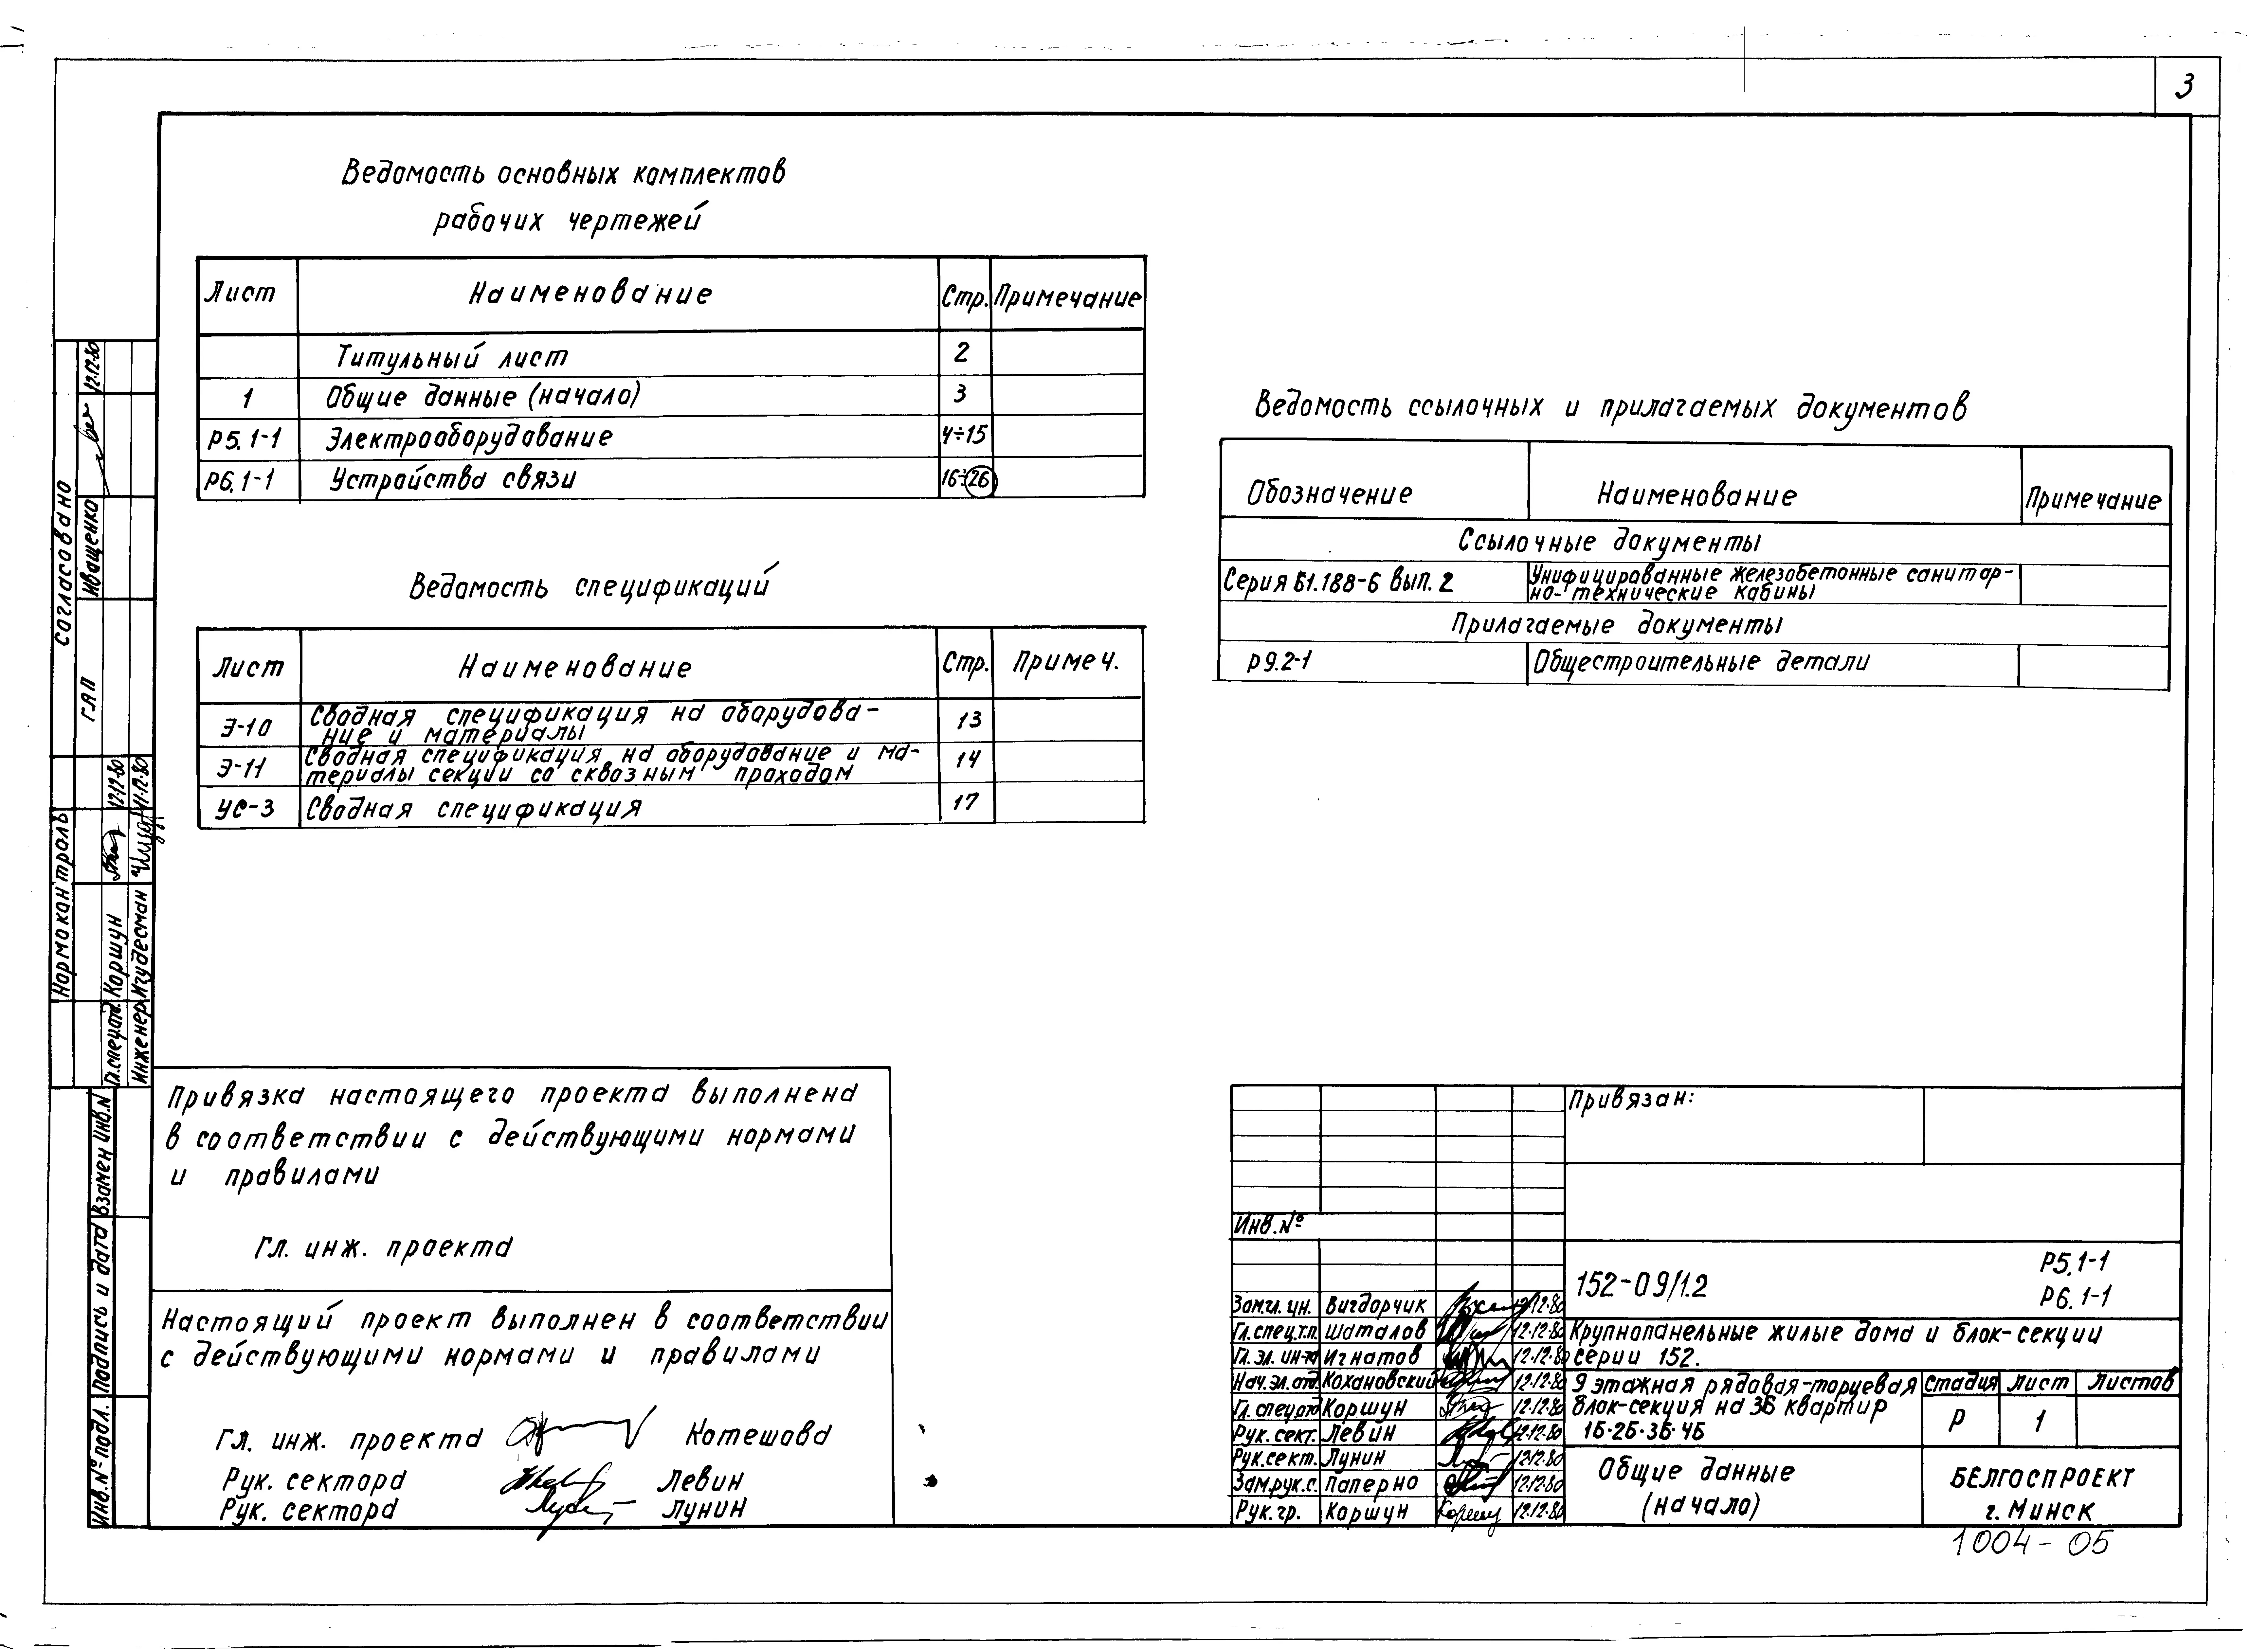 3
Ведомость основных комплектов
рабочих чертежей
Лист Наименование Стр. Примечание
Титульный лист 2
1 Общие данные (начало) 3
Р5.1-1 Электрооборудование 4÷15
Р6.1-1 Устройства связи 16÷26
Ведомость спецификаций
Лист Наименование Стр. Примеч.
Э-10 Сводная спецификация на оборудова-
ние и материалы 13
Э-11 Сводная спецификация на оборудование и ма-
териалы секции со сквозным проходом 14
УС-3 Сводная спецификация 17
Ведомость ссылочных и прилагаемых документов
Обозначение Наименование Примечание
Ссылочные документы
Серия Б1.188-6 вып. 2 Унифицированные железобетонные санитар-
но-технические кабины
Прилагаемые документы
Р9.2-1 Общестроительные детали
Согласовано
ГАП Иващенко 12.12.80
Нормоконтроль
Гл.спец.отд. Коршун 12.12.80
Инженер Игудесман 11.12.80
Взамен инв.N
Подпись и дата
Инв.№ подл.
Привязка настоящего проекта выполнена
в соответствии с действующими нормами
и правилами
Гл. инж. проекта
Настоящий проект выполнен в соответствии
с действующими нормами и правилами
Гл. инж. проекта Котешова
Рук. сектора Левин
Рук. сектора Лунин
Привязан:
Инв.№
152-09/1.2
Р5.1-1
Р6.1-1
Зам.гл.ин. Вигдорчик 12.12.80
Гл.спец.т.п. Шаталов 12.12.80
Гл.эл.ин-та Игнатов 12.12.80
Нач.эл.отд. Кохановский 12.12.80
Гл.спец.отд Коршун 12.12.80
Рук.сект. Левин 12.12.80
Рук.сект. Лунин 12.12.80
Зам.рук.с. Паперно 12.12.80
Рук.гр. Коршун 12.12.80
Крупнопанельные жилые дома и блок-секции
серии 152.
9 этажная рядовая-торцевая
блок-секция на 36 квартир
1Б-2Б-3Б-4Б
Стадия Лист Листов
Р 1
Общие данные
(начало)
БЕЛГОСПРОЕКТ
г. Минск
1004-05